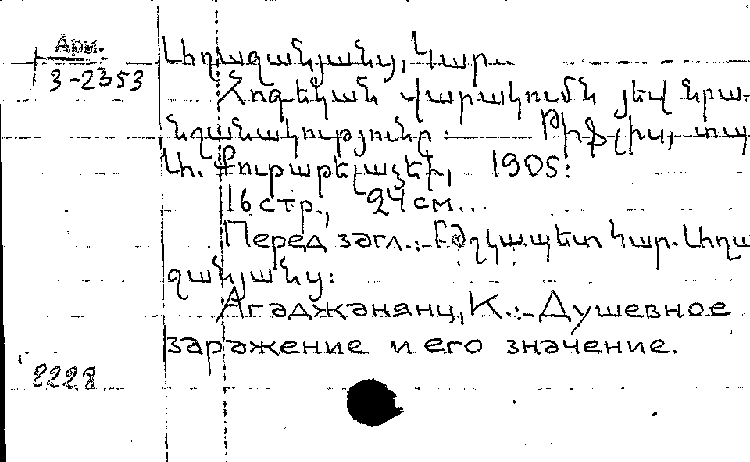 Арм.
3-2353
Աղազանյանց, Կար.
Հոգեկան վարակումն յեվ նրա
նշանակությունը: Թիֆլիս, տպ.
Մ. Քուրարելաշեի, 1905:
16 стр., 24 см.
Перед загл.: Բժշկապետ Կար. Աղա
զանյանց:
Агаджанянц, К.: Душевное
заражение и его значение.
2228